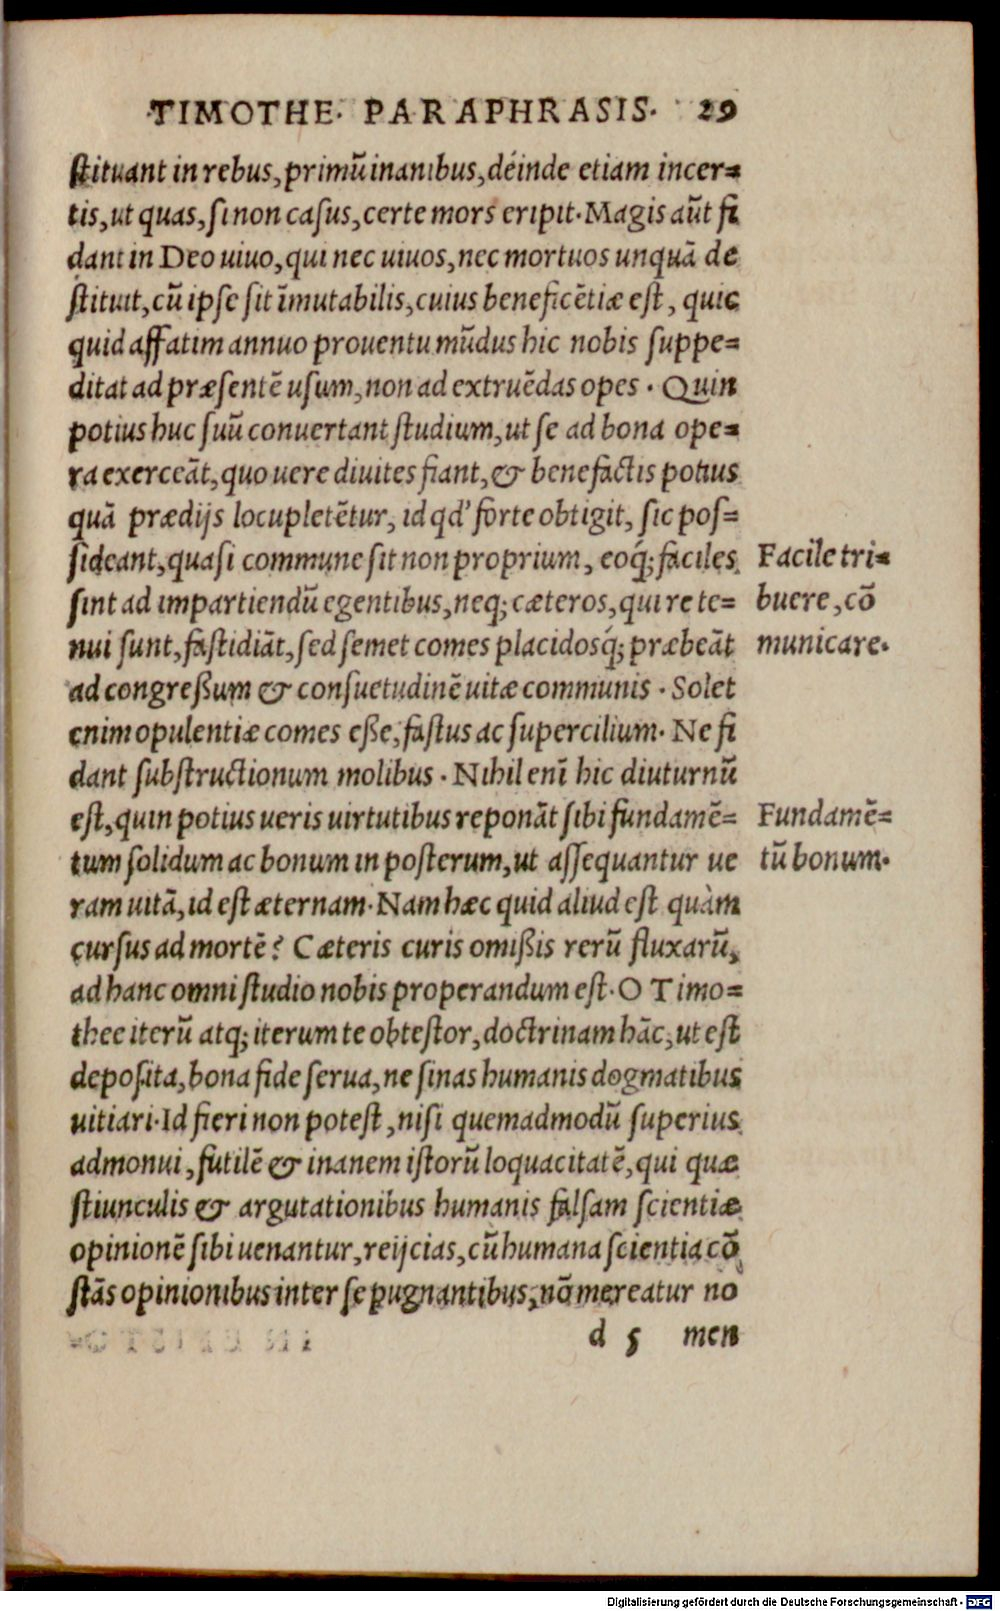 TIMOTHE· PARAPHRASIS· 29
ſtituant in rebus, primũ inanibus, deinde etiam incer=
tis, ut quas, ſi non caſus, certe mors eripit. Magis aũt fi
dant in Deo uiuo, qui nec uiuos, nec mortuos unquã de
ſtituit, cũ ipſe ſit ĩmutabilis, cuius beneficẽtiæ eſt, quic
quid affatim annuo prouentu mũdus hic nobis ſuppe=
ditat ad præſentẽ uſum, non ad extruẽdas opes. Quin
potius huc ſuũ conuertant ſtudium, ut ſe ad bona ope=
ra exerceãt, quo uere diuites fiant, & benefactis potius
quã prædijs locupletẽtur, id qd' forte obtigit, ſic poſ=
ſideant, quaſi commune ſit non proprium, eoq́; faciles
Facile tri=
ſint ad impartiendũ egentibus, neq; cæteros, qui re te=
buere, cõ
nui ſunt, faſtidiãt, ſed ſemet comes placidosq́; præbeãt
municare.
ad congreßum & conſuetudinẽ uitæ communis. Solet
enim opulentiæ comes eße, faſtus ac ſupercilium. Ne fi
dant ſubſtructionum molibus. Nihil enĩ hic diuturnũ
eſt, quin potius ueris uirtutibus reponãt ſibi fundamẽ=
Fundamẽ=
tum ſolidum ac bonum in poſterum, ut aſſequantur ue
tũ bonum.
ram uitã, id eſt æternam. Nam hæc quid aliud eſt quàm
curſus ad mortẽ? Cæteris curis omißis rerũ fluxarũ,
ad hanc omni ſtudio nobis properandum eſt. O Timo=
thee iterũ atq; iterum te obteſtor, doctrinam hãc, ut eſt
depoſita, bona fide ſerua, ne ſinas humanis dogmatibus
uitiari. Id fieri non poteſt, niſi quemadmodũ ſuperius
admonui, futilẽ & inanem iſtorũ loquacitatẽ, qui quæ
ſtiunculis & argutationibus humanis falſam ſcientiæ
opinionẽ ſibi uenantur, reijcias, cũ humana ſcientia cõ
ſtãs opinionibus inter ſe pugnantibus, nõ mereatur no
d 5 men
Digitalisierung gefördert durch die Deutsche Forschungsgemeinschaft - DFG